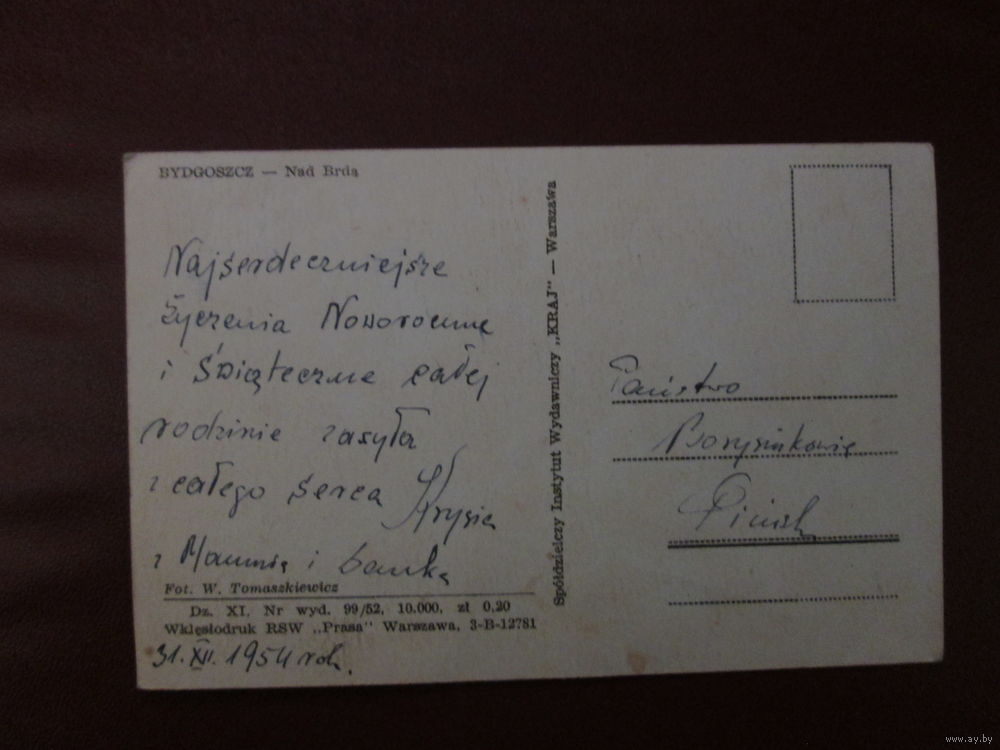 BYDGOSZCZ — Nad Brdą
Najserdeczniejsze
Życzenia Noworoczne
i Świąteczne całej
rodzinie zasyła
z całego serca Krysia
z Mamusią i
Fot. W. Tomaszkiewicz
Dz. XI, Nr wyd. 99/52, 10.000, zł 0,20
Wklęsłodruk RSW „Prasa” Warszawa, 3-B-12781
31.XII.1954 rok.
Spółdzielczy Instytut Wydawniczy „KRAJ” — Warszawa
Państwo
Pińsk
www.ay.by